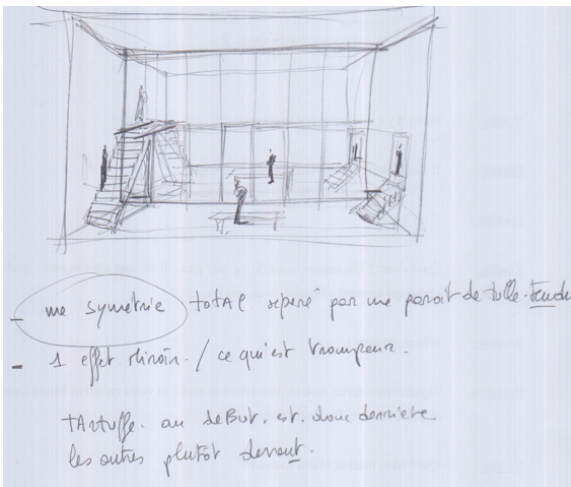 - une symétrie totAl séparé par une paroit de tulle. tendu
- 1 effet miroir. / ce qui est trompeur.
tArtuffe. au deBut. est. donc derrière
les autres plutôt devant.